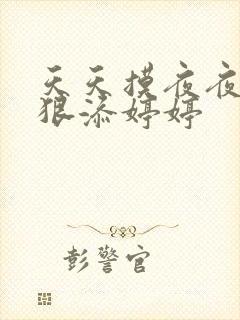 天天摸夜夜
狠添婷婷
彭警官